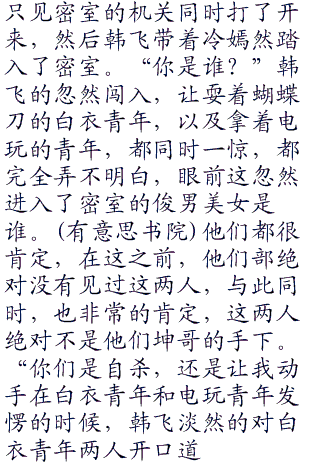 只见密室的机关同时打了开
来，然后韩飞带着冷嫣然踏
入了密室。“你是谁？”韩
飞的忽然闯入，让耍着蝴蝶
刀的白衣青年，以及拿着电
玩的青年，都同时一惊，都
完全弄不明白，眼前这忽然
进入了密室的俊男美女是
谁。(有意思书院)他们都很
肯定，在这之前，他们部绝
对没有见过这两人，与此同
时，也非常的肯定，这两人
绝对不是他们坤哥的手下。
“你们是自杀，还是让我动
手在白衣青年和电玩青年发
愣的时候，韩飞淡然的对白
衣青年两人开口道